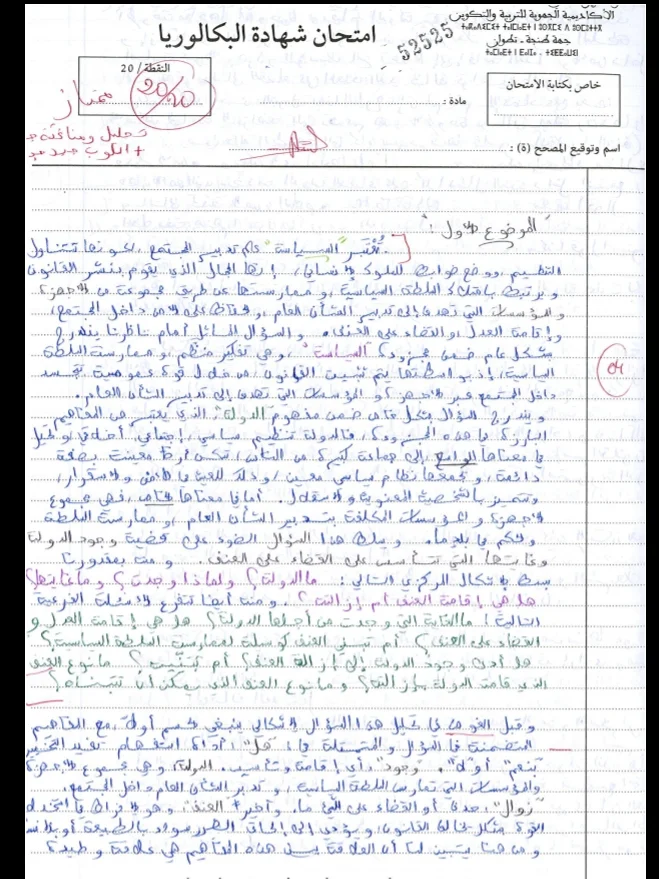 الأكاديمية الجهوية للتربية والتكوين
جهة طنجة - تطوان
امتحان شهادة البكالوريا
52525
خاص بكتابة الامتحان
النقطة / 20
20/20
ممتاز
مادة :
تحليل ومناقشة
+ أسلوب جيد
اسم وتوقيع المصحح (ة) :
الموضوع الأول :
تُعْتَبَرُ "السياسة" علم تدبير المجتمع، لكونها تتناول
التنظيم، ووضع ضوابط للسلوك الإنساني، إنها المجال الذي يقوم بنشر القانون
ويرتبط بامتلاك السلطة السياسية، وممارستها عن طريق مجموعة من الأجهزة
والمؤسسات التي تهدف إلى تدبير الشأن العام، والحفاظ على الأمن داخل المجتمع،
وإقامة العدل، والقضاء على العنف. والسؤال الماثل أمام ناظرنا يندرج
بشكل عام ضمن مجزوءة "السياسة"، وهي تفكير منظم، وممارسة السلطة
السياسية، إذ بواسطتها يتم تثبيت القوانين، من خلال قوة عمومية تجسد
داخل المجتمع عبر الأجهزة، والمؤسسات التي تهدف إلى تدبير الشأن العام.
ويندرج السؤال بشكل خاص ضمن مفهوم "الدولة"، الذي يعتبر من المفاهيم
البارزة في هذه المجزوءة، فالدولة تنظيم سياسي، إجتماعي، أخلاقي، وتحيل
في معناها الواسع إلى جماعة كبيرة من الناس، تسكن أرضا معينة بصفة
دائمة، ويجمعها نظام سياسي معين، وذلك للعيش في الأمن والاستقرار،
وتتميز بالشخصية المعنوية والاستقلال. أما في معناها الخاص، فهي مجموع
الأجهزة والمؤسسات المكلفة بتدبير الشأن العام، وممارسة السلطة
والحكم في بلد ما. ويسلط هذا السؤال الضوء على قضية وجود الدولة
وغايتها التي تتأسس على القضاء على العنف. ومنه بمقدورنا
بسط الإشكال المركزي التالي: ما الدولة؟ ولماذا وجدت؟ وما غايتها؟
هل هي إقامة العنف أم إزالته؟. ومنه أيضا تتفرع الأسئلة الفرعية
التالية: ما الغاية التي وجدت من أجلها الدولة؟ هل هي إقامة العدل و
القضاء على العنف؟ أم تبني العنف كوسيلة لممارسة السلطة السياسية؟
هل أدى وجود الدولة إلى إزالة العنف؟ أم تثبيته؟ ما نوع العنف
الذي قامت الدولة بإزالته؟ وما نوع العنف الذي يمكن أن تتبناه؟
04
وقبل الغوص في تحليل هذا السؤال الإشكالي ينبغي الحسم أولا، مع المفاهيم
المتضمنة في السؤال والمتمثلة في: "هل": أداة استفهام تفيد التخيير
"بنعم" أو "لا"، "وجود": أي إقامة وتأسيس، الدولة: وهي مجموع الأجهزة
والمؤسسات التي تمارس السلطة السياسية، وتدبير الشأن العام داخل المجتمع،
"زوال": حذف أو القضاء على الشيء ما. وأخيرا "العنف": وهو الإفراط في استخدام
القوة بشكل يخالف القانون، ويؤدي إلى إلحاق الضرر سواء بالطبيعة أو بالإنسان
ومن هنا يتبين لنا أن العلاقة بين هذه المفاهيم هي علاقة وطيدة